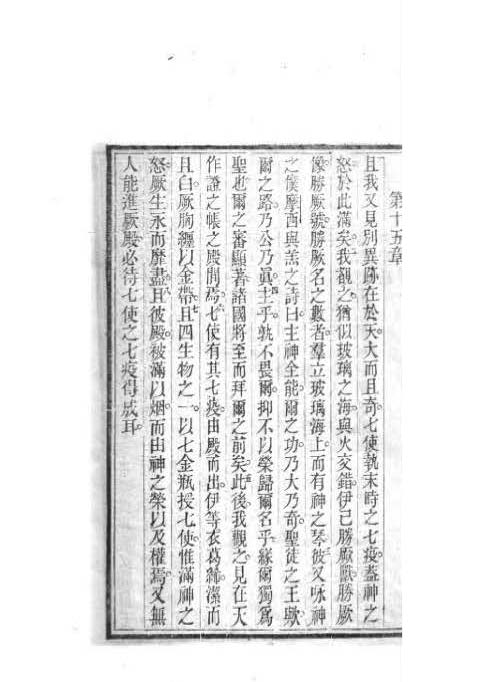 第十五章
且我又見別異跡在於天大而且奇七使執末時之七疫蓋神之
怒於此滿矣我觀之猶似玻璃之海與火交錯伊已勝厥獸勝厥
像勝厥號勝厥名之數者羣立玻璃海上而有神之琴彼又咏神
之僕摩西與羔之詩曰主神全能爾之功乃大乃奇聖徒之王歟
爾之路乃公乃眞主乎孰不畏爾抑不以榮歸爾名乎緣爾獨爲
聖也爾之審顯著諸國將至而拜爾之前矣此後我觀之見在天
作證之帳之殿開焉七使有其七疫由殿而出伊等衣葛絺潔而
且白厥胸纏以金帶且四生物之一以七金瓶授七使惟滿神之
怒厥生永而靡盡且彼殿被滿以烟而由神之榮以及權焉又無
人能進厥殿必待七使之七疫得成耳